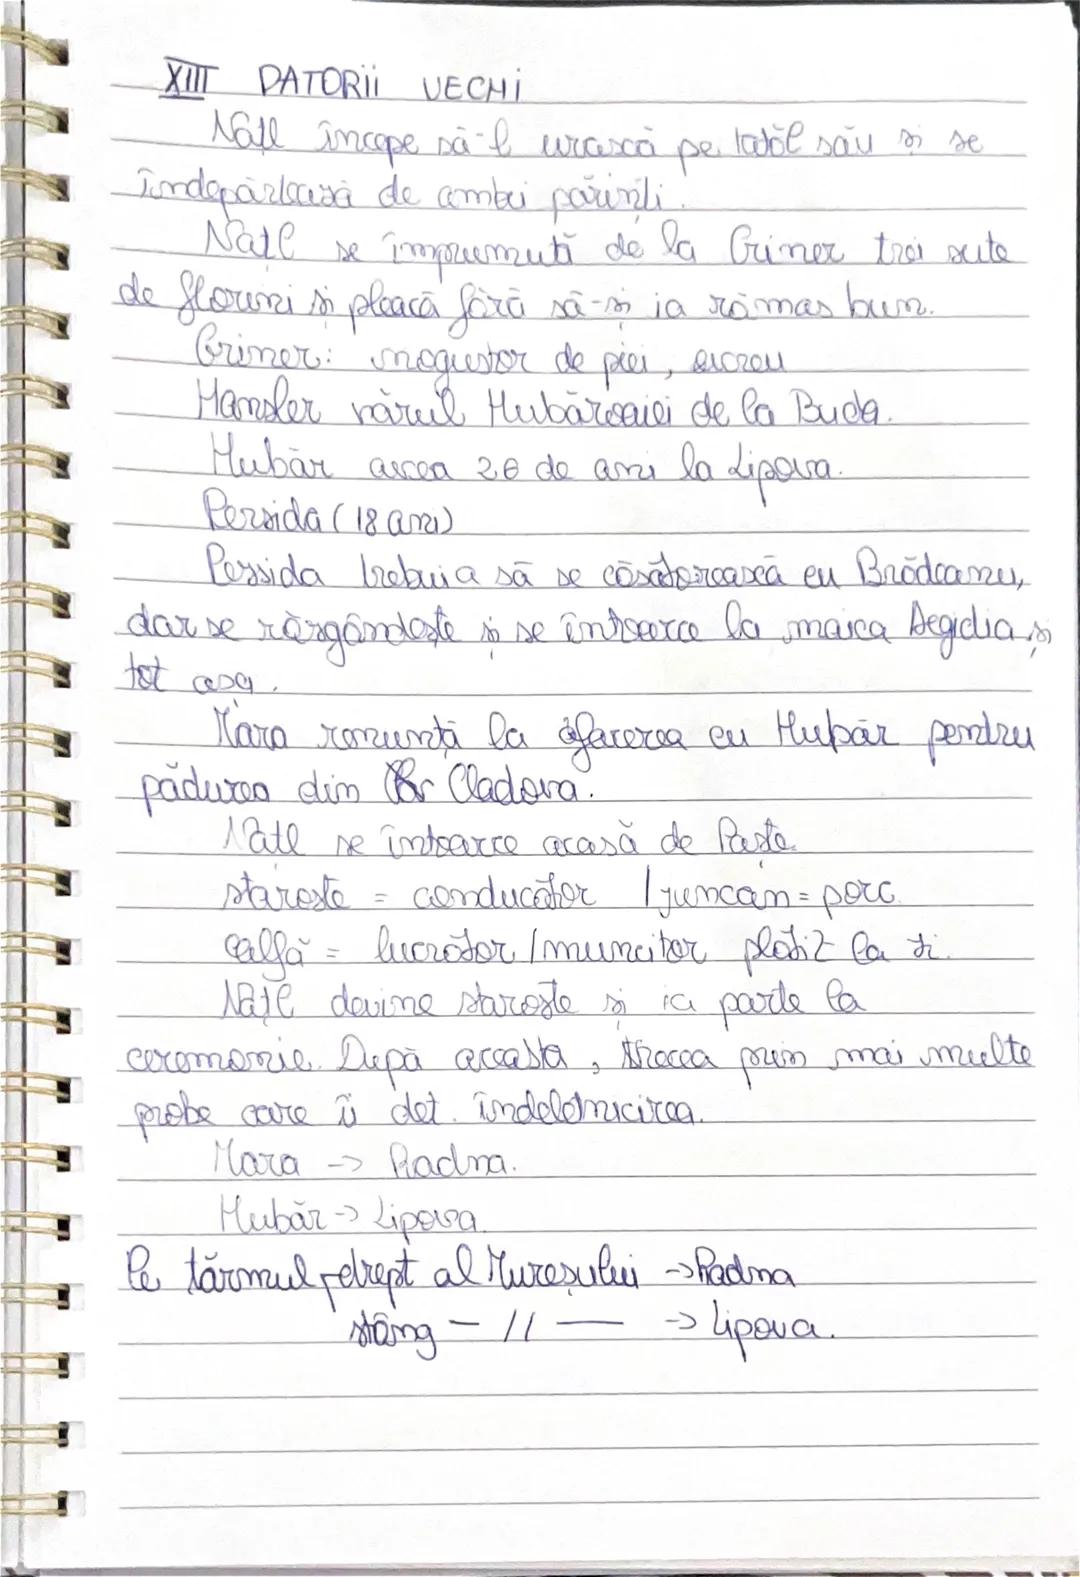 XIII DATORII VECHI
Natl începe să-l urască pe tatăl său și se
îndepărtează de ambii părinți.
Natl se împrumută de la Griner trei sute
de florini și pleacă fără să-și ia rămas bun.
Griner: negustor de piei, evreu
Hansler vărul Hubăroaiei de la Buda.
Hubăr avea 26 de ani la Lipova.
Persida (18 ani)
Persida trebuia să se căsătorească cu Brădeanu,
dar se răzgândește și se întoarce la maica Aegidia și
tot așa.
Mara renunță la afacerea cu Hubăr pentru
pădurea din Cladova.
Natl se întoarce acasă de Paște.
staroste = conducător / juncan = porc
calfă = lucrător / muncitor plătit la zi.
Natl devine staroste și ia parte la
ceremonie. După aceasta, trecea prin mai multe
probe care îi det. îndeletnicirea.
Mara -> Radna.
Hubăr -> Lipova.
Pe tărmul drept al Mureșului -> Radna
stâng - // — -> Lipova.